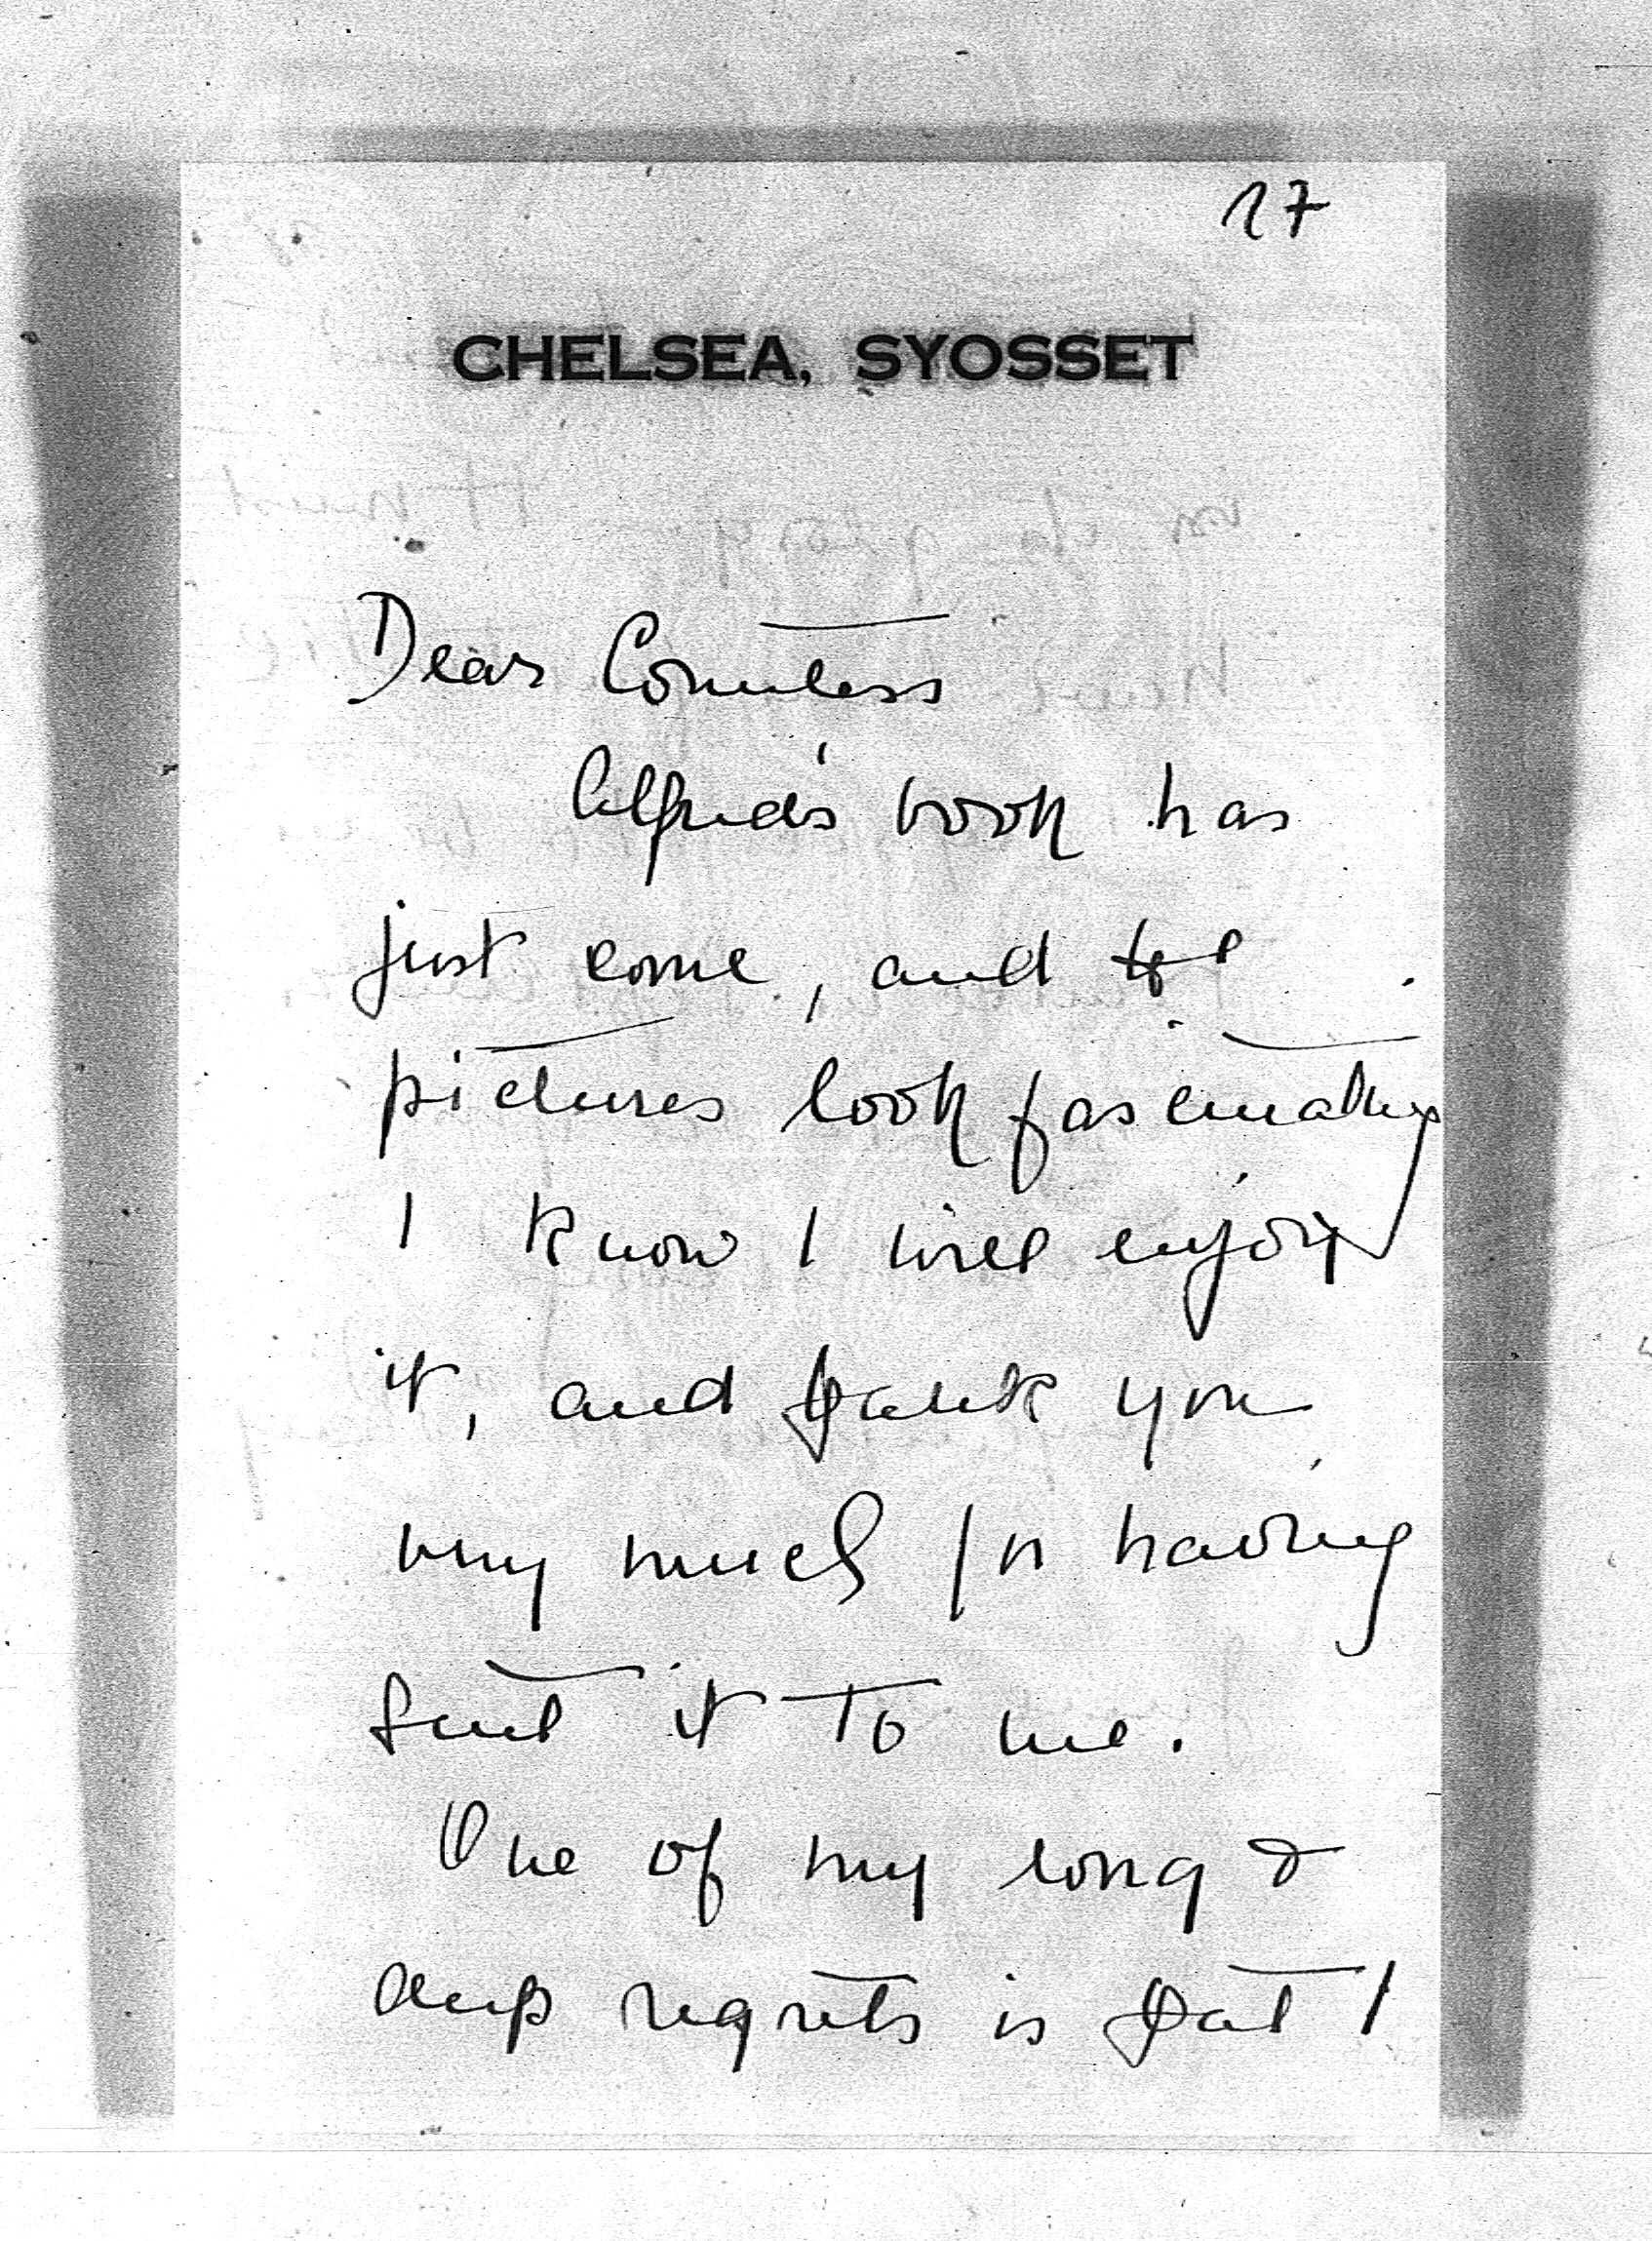 17
CHELSEA, SYOSSET
Dear Countess
Alfred's book has
just come, and the
pictures look fascinating
I know I will enjoy
it, and thank you
very much for having
sent it to me.
One of my long &
deep regrets is that I